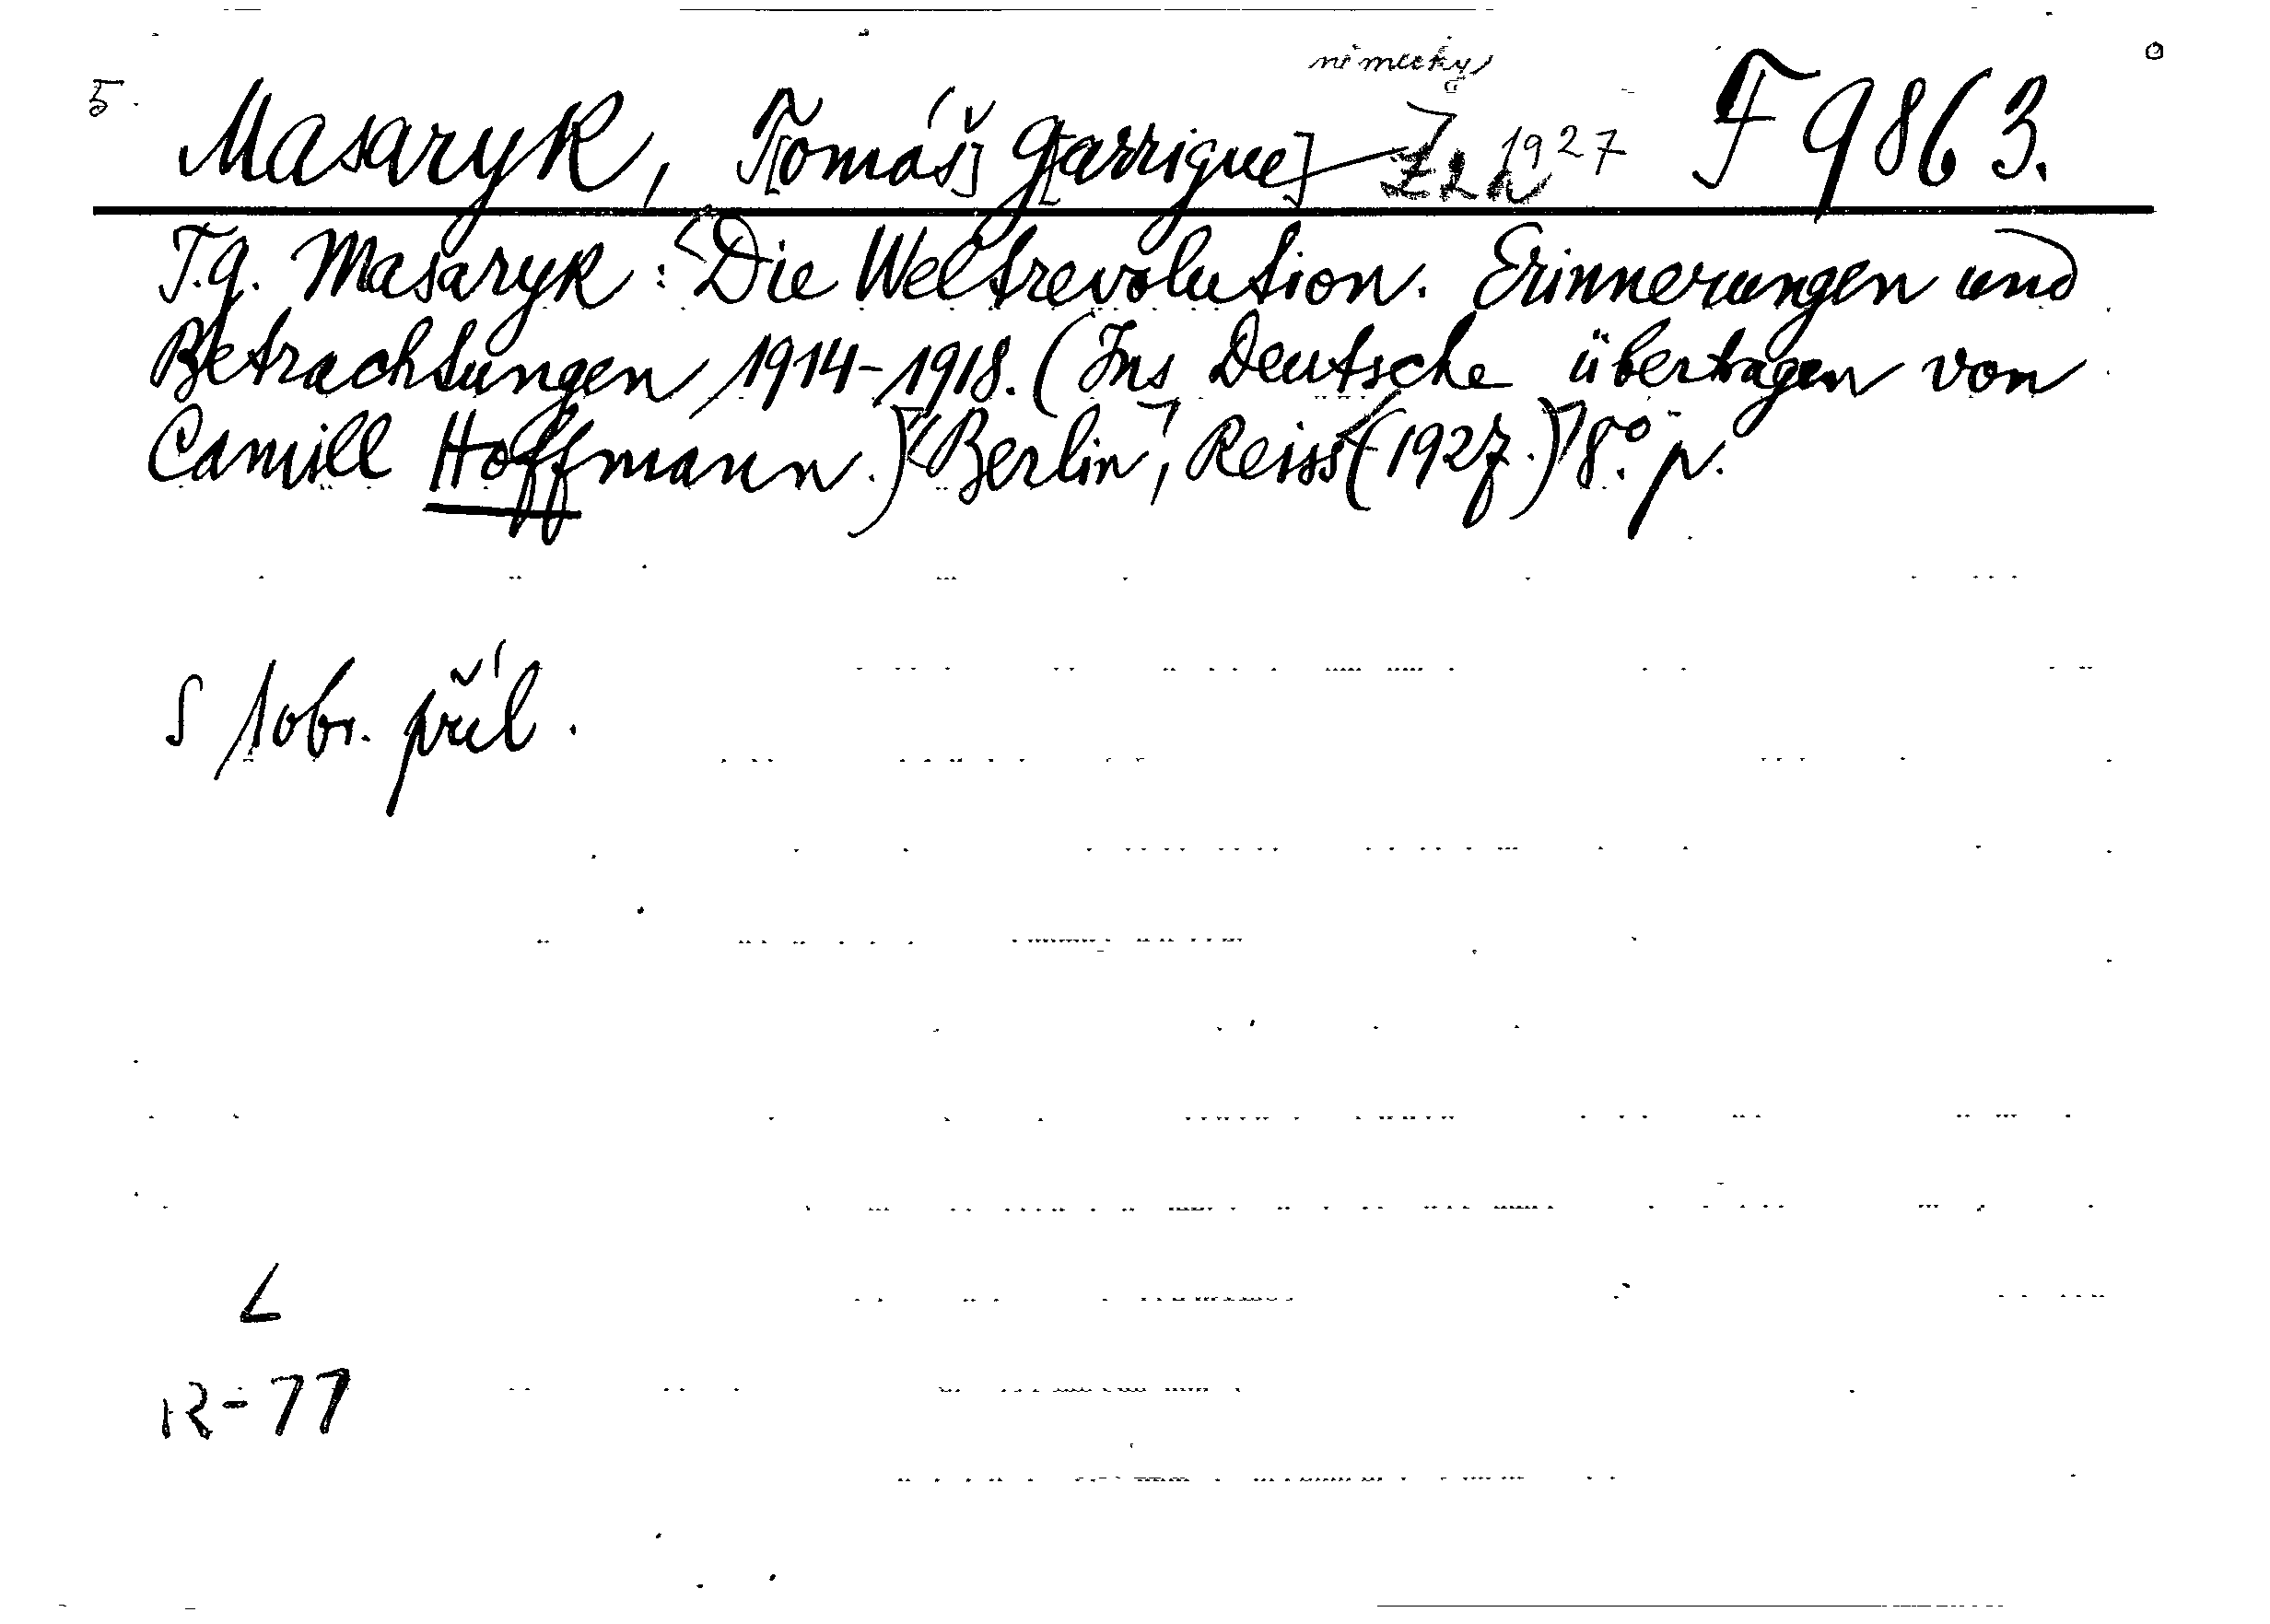 německy
5.
Masaryk, T[omáš] G[arrigue] 1927 F 9863.
T.G. Masaryk: Die Weltrevolution. Erinnerungen und
Betrachtungen 1914-1918. (Ins Deutsche übertragen von
Camill Hoffmann.) Berlin, Reiss (1927.) 8.° p.
S 1 obr. příl.
L
R-77